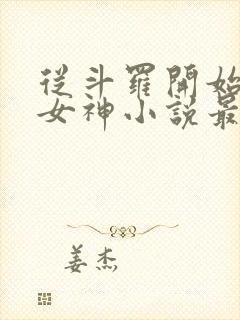 從斗羅開始
女神小說最
姜杰